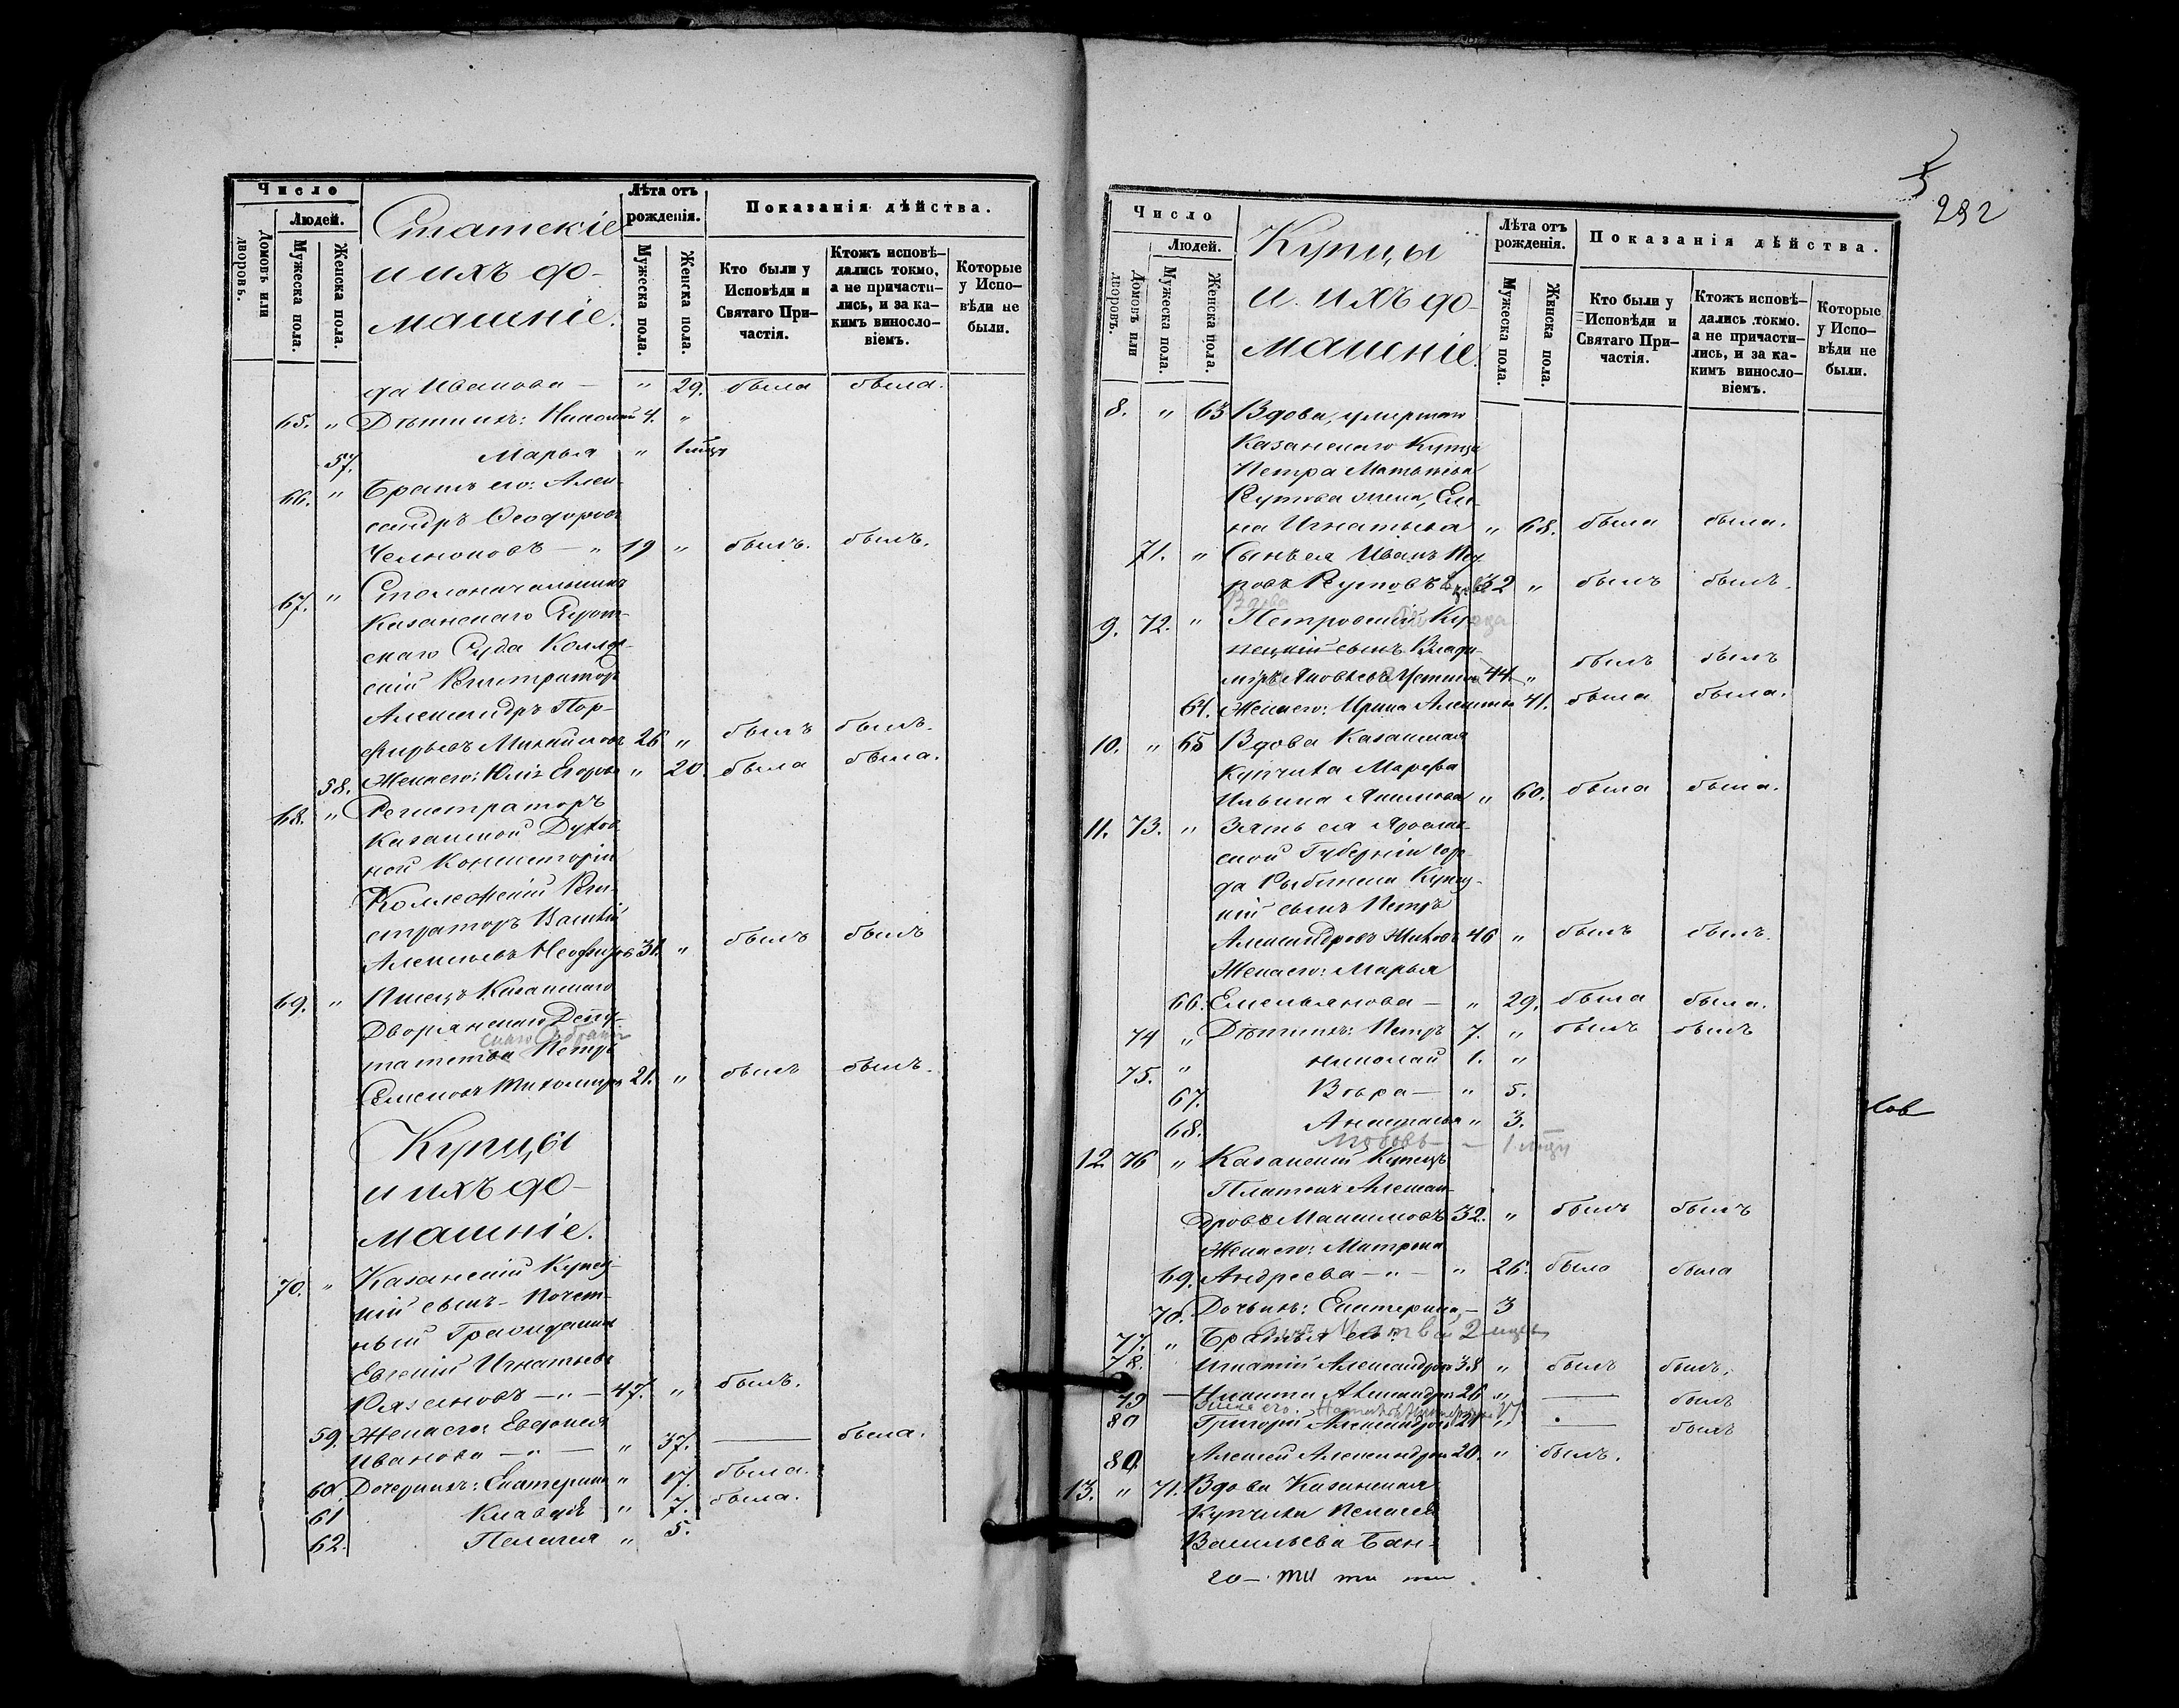 Число
Людей.
Домовъ или дворовъ.
Мужеска пола.
Женска пола.
Статскіе
и ихъ до-
машніе.
Лѣта отъ
рожденія.
Мужеска пола.
Женска пола.
Показанія дѣйства.
Кто были у
Исповѣди и
Святаго При-
частія.
Ктожъ исповѣ-
дались токмо,
а не причасти-
лись, и за ка-
кимъ винословіемъ.
Которые
у Испо-
вѣди не
были.
да Иванова — " 29. была была.
65. " Дѣти ихъ: Николай 4. "
57. Марья " 1 мѣсяц
66. " Братъ его: Алек-
сандръ Ѳеодоровъ
Челноковъ — " 19 " былъ. былъ.
67. " Столоначальникъ
Казанскаго
скаго Суда Коллеж-
скій Регистраторъ
Александръ Пор-
фирьевъ Михайловъ 26 " былъ былъ.
58. Жена его: Юлія Егорова " 20. была была.
68. " Регистраторъ
Казанской Духов-
ной Консисторіи
Коллежскій Реги-
страторъ Василій
Алексѣевъ 31. " былъ былъ
69. " Писецъ Казанскаго
Дворянскаго Депу-
скаго Собранія
татства Петръ
Семеновъ Тихомировъ 21. " былъ былъ.
Купцы
и ихъ до-
машніе.
70. " Казанскій Купец-
кій сынъ - Почет-
ный Гражданинъ
Евгеній Игнатьевъ
Рязановъ — " — 47. " былъ.
59. Жена его: Евдокія
Иванова — " — " 37. — была.
60. Дочери ихъ: Екатерина " 17. была.
61 Клавдія " 7. была.
62. Пелагея " 5.
5
292
Число
Людей.
Домовъ или дворовъ.
Мужеска пола.
Женска пола.
Купцы
и ихъ до-
машніе
Лѣта отъ
рожденія.
Мужеска пола.
Женска пола.
Показанія дѣйства.
Кто были у
Исповѣди и
Святаго При-
частія.
Ктожъ исповѣ-
дались токмо.
а не причасти-
лись, и за ка-
кимъ винословіемъ.
Которые
у Испо-
вѣди не
были.
8. " 63 Вдова, умершаго
Казанскаго Купца
Петра Матвѣева
жена, Еле-
на Игнатьева " 68. была была.
71. " Сынъ ея Иванъ Пет-
ровъ 32 " былъ былъ.
Вдова
9. 72. " Петровскій Ку-
пецкій сынъ Влади-
міръ 44. " былъ былъ
64. Жена его: Ирина 41. была была.
10. " 65 Вдова Казанская
Купчиха Марѳа
Ильина " 60. была была.
11. 73. " Зять ея Ярослав-
ской Губерніи горо-
да Рыбинска Купец-
кій сынъ Петръ
Александровъ 46 " былъ былъ.
Жена его: Марья
66. Емельянова — " 29. была была.
74 " Дѣти ихъ: Петръ 7. " былъ былъ
75. " Николай 1. "
67. Вѣра — " 5.
68. Анастасья " 3.
Любовь — — 1 мѣсяц
лов
12 76 " Казанскій Купецъ
Платонъ Алексан-
дровъ Максимовъ 32. " былъ былъ
Жена его: Матрона
69. Андреева — " — " 26. была была
70. Дочь ихъ: Екатерина, — 3
77. " Братья его:
78. Игнатій Александровъ 38 " былъ былъ.
79 — Никита Александровъ 26 " — былъ
80 Григорій Александровъ " — былъ
80. Алексѣй Александровъ 20. " былъ.
13. " 71. Вдова Казанская
Купчиха Пелагея
Васильева